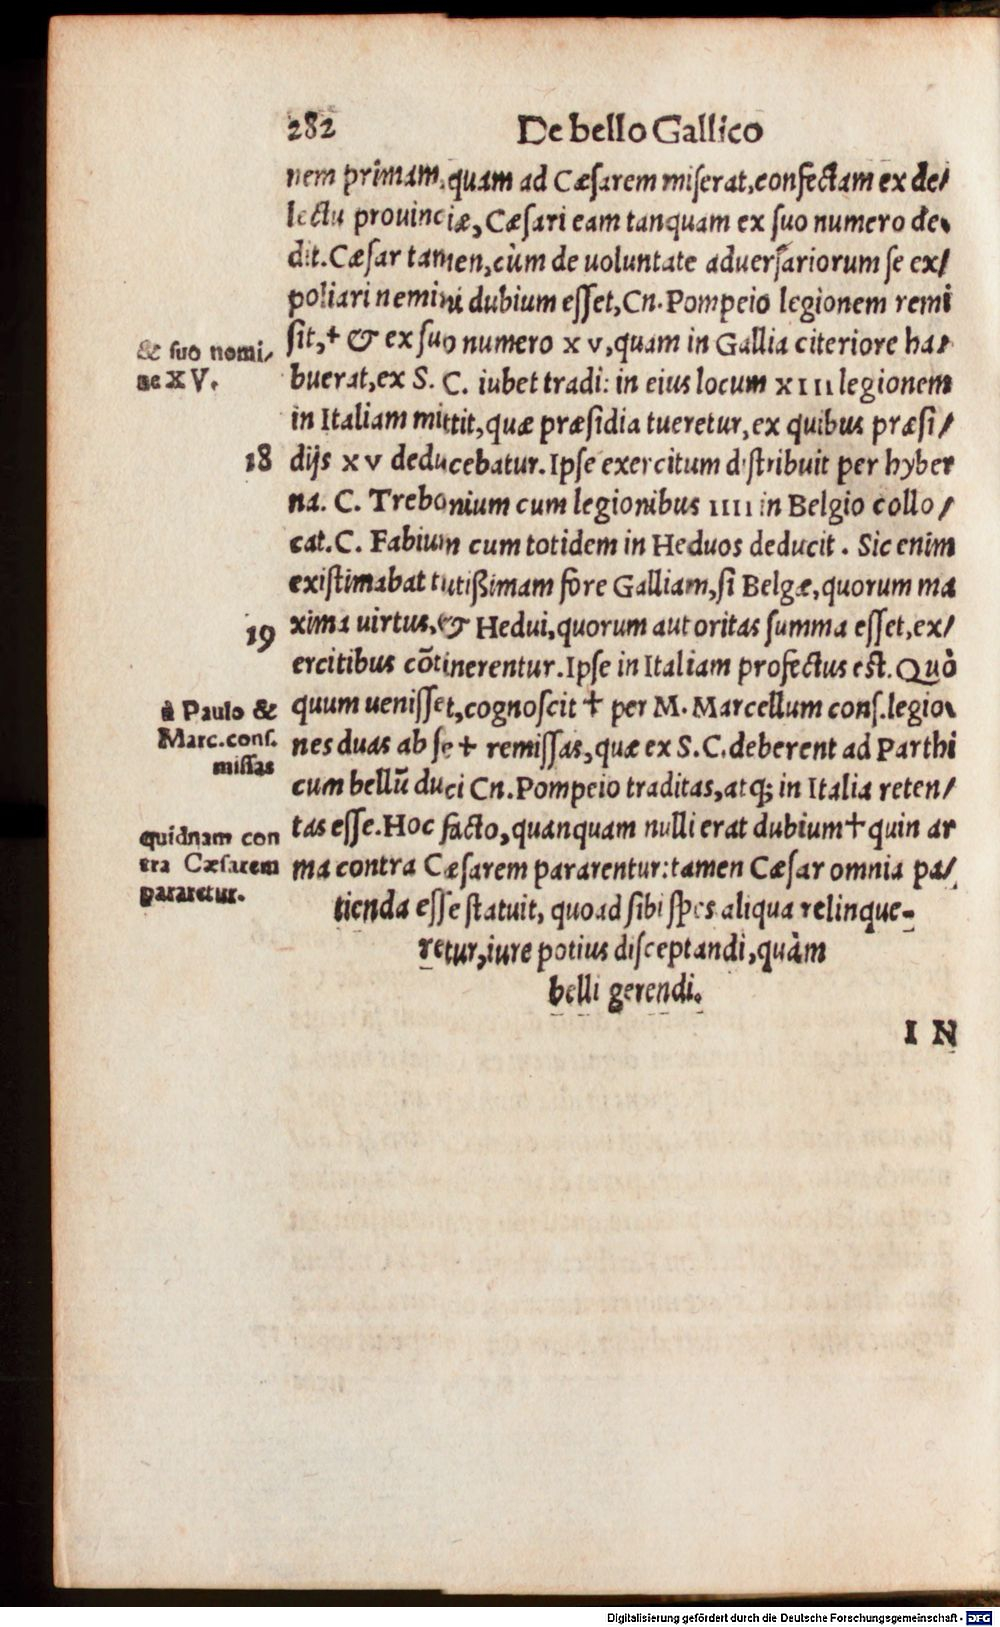 282 De bello Gallico
nem primam, quam ad Cæsarem miserat, confectam ex de/
lectu prouinciæ, Cæsari eam tanquam ex suo numero de-
dit. Cæsar tamen, cùm de uoluntate aduersariorum se ex/
poliari nemini dubium esset, Cn. Pompeio legionem remi
sit, + & ex suo numero x v, quam in Gallia citeriore ha-
& suo nomi/
ne XV.
buerat, ex S. C. iubet tradi: in eius locum XIII legionem
in Italiam mittit, quæ præsidia tueretur, ex quibus præsi/
18 dijs x v deducebatur. Ipse exercitum distribuit per hyber
na. C. Trebonium cum legionibus IIII in Belgio collo/
cat. C. Fabium cum totidem in Heduos deducit. Sic enim
existimabat tutißimam fore Galliam, si Belgæ, quorum ma
19 xima uirtus, & Hedui, quorum autoritas summa esset, ex/
ercitibus cōtinerentur. Ipse in Italiam profectus est. Quò
quum uenisset, cognoscit + per M. Marcellum cons. legio-
à Paulo &
Marc. cons.
missas
nes duas ab se + remissas, quæ ex S. C. deberent ad Parthi
cum bellū duci Cn. Pompeio traditas, atq; in Italia reten/
tas esse. Hoc facto, quanquam nulli erat dubium + quin ar
quidnam con
tra Cæsarem
pararetur.
ma contra Cæsarem pararentur: tamen Cæsar omnia pa/
tienda esse statuit, quoad sibi spes aliqua relinque-
retur, iure potius disceptandi, quàm
belli gerendi.
I N
Digitalisierung gefördert durch die Deutsche Forschungsgemeinschaft - DFG